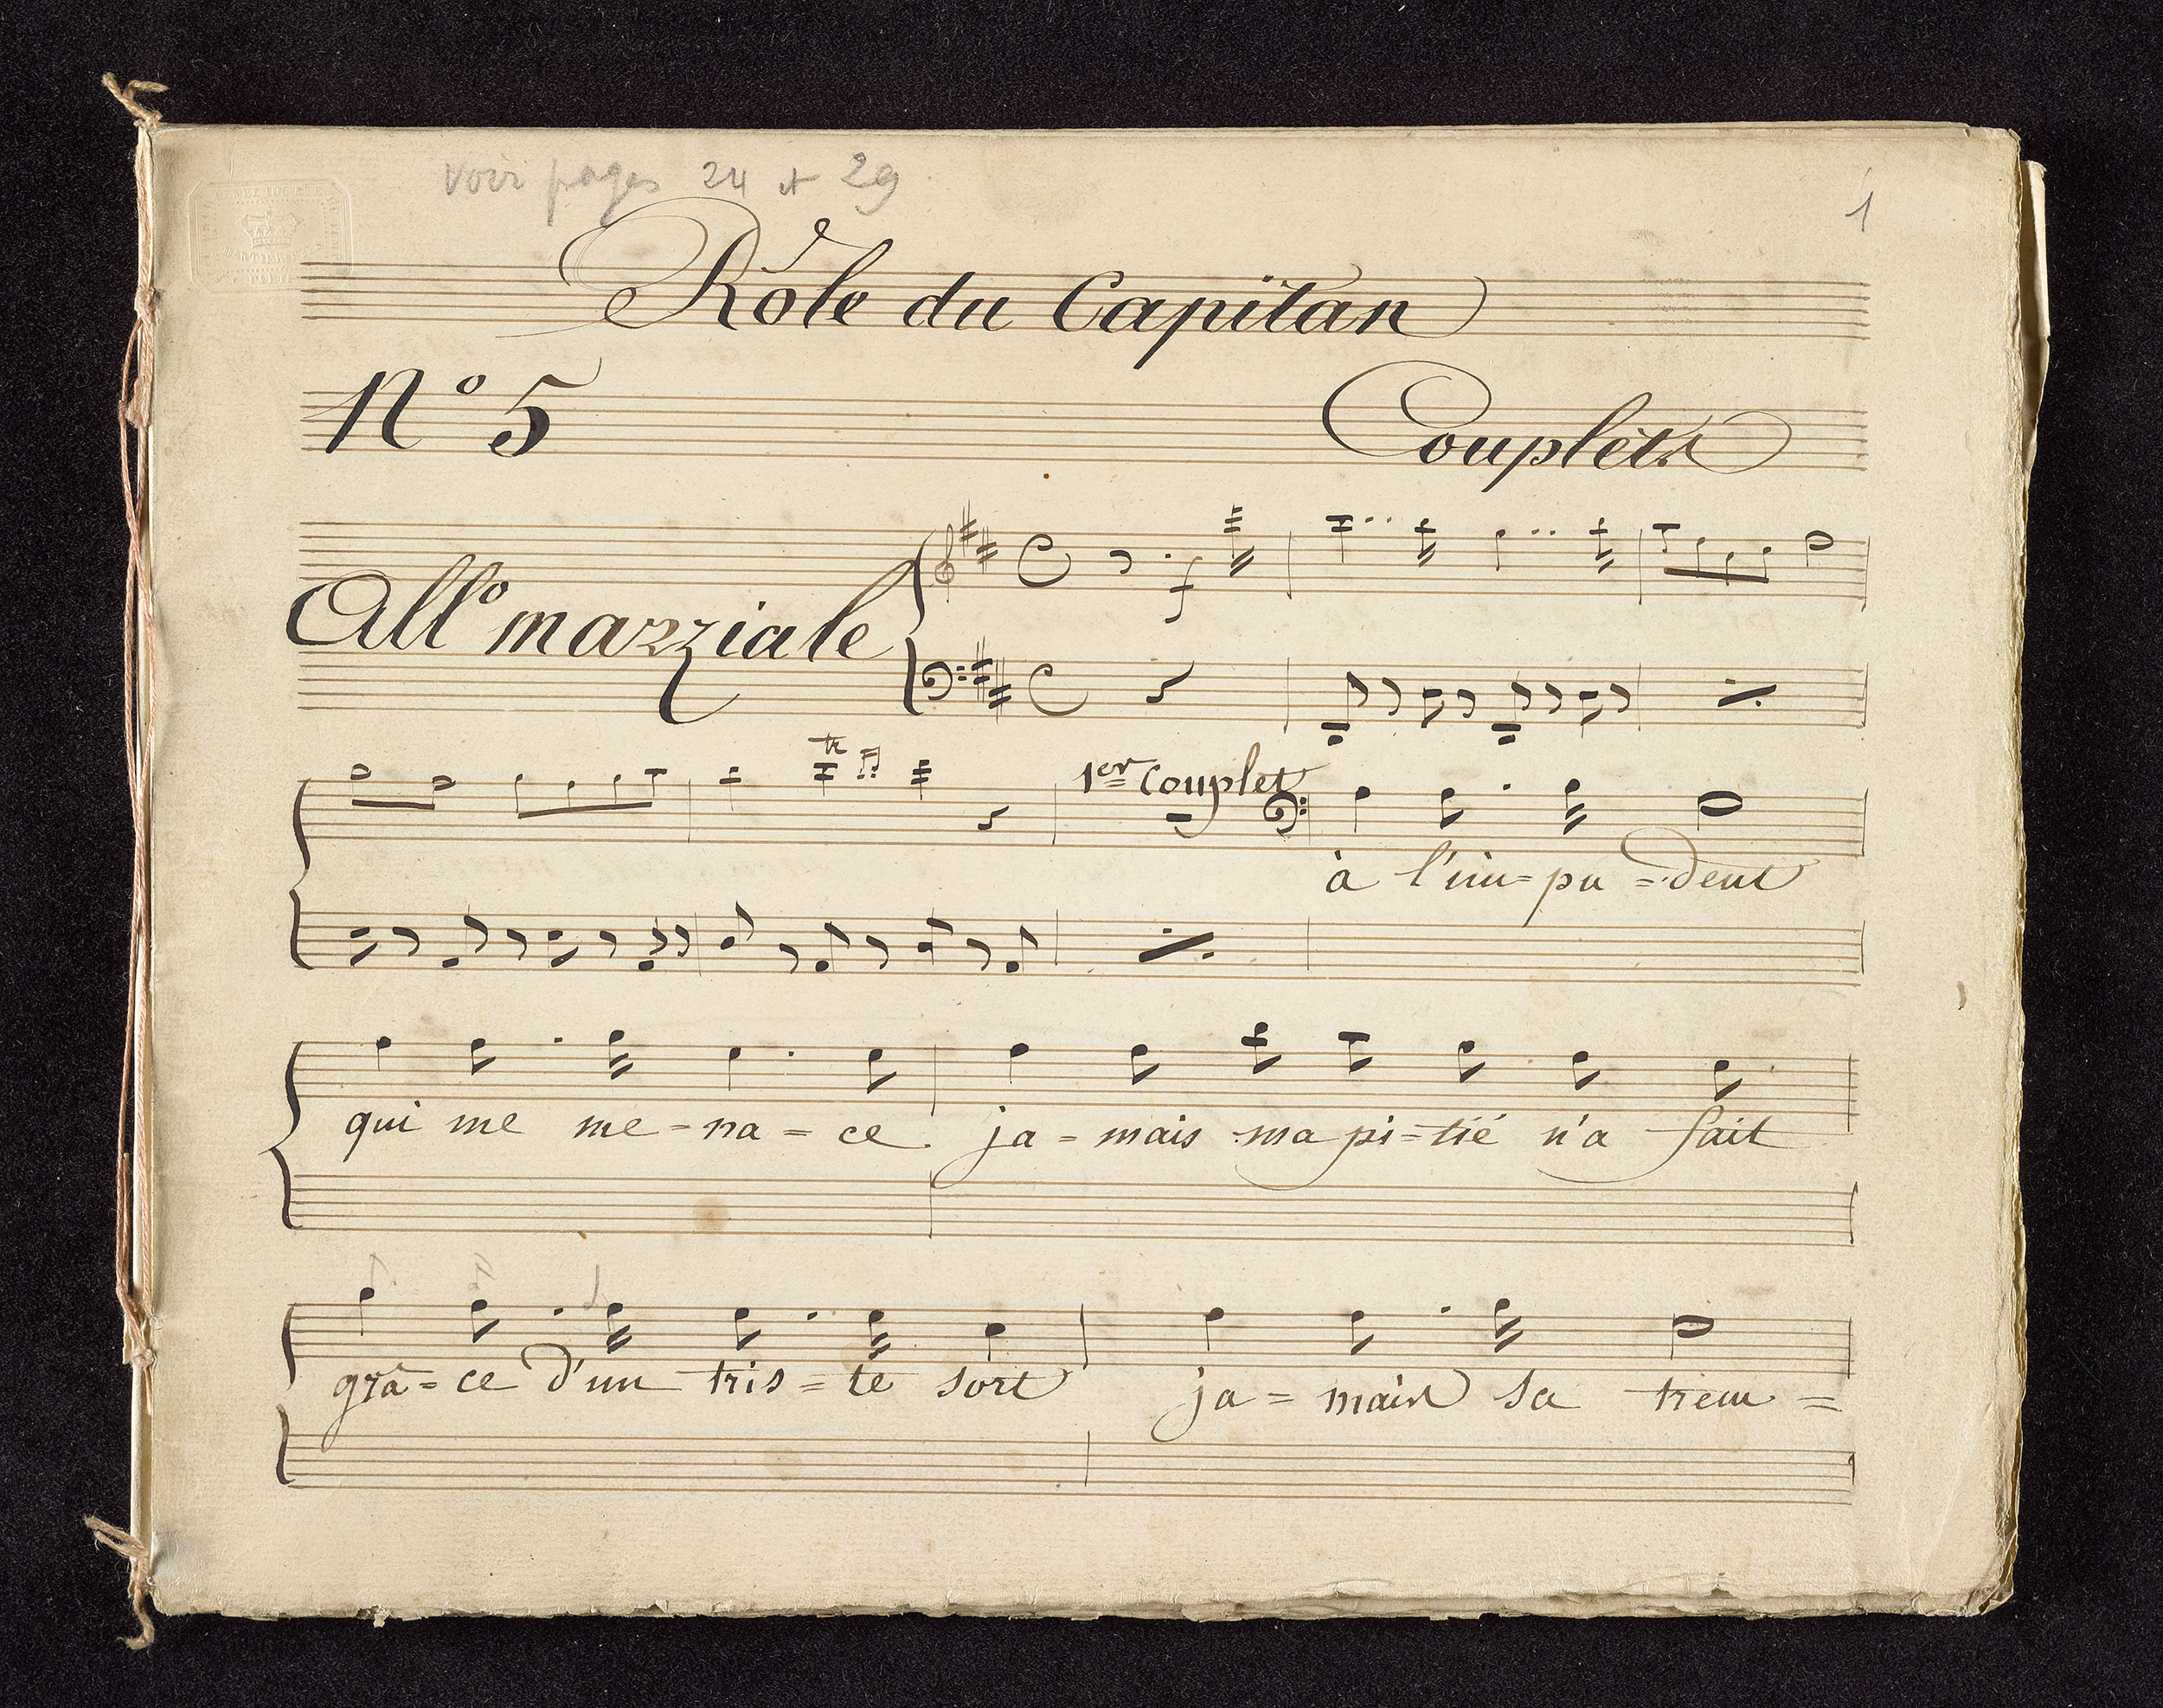 voir pages 24 et 29
1
Rôle du Capitan
N° 5 Couplets
All° marziale
f
tr
1er Couplet
à l'im=pu=dent
qui me me=na=ce ja=mais ma pi=tié n'a fait
grâ=ce d'un tris=te sort ja=mais sa trem=